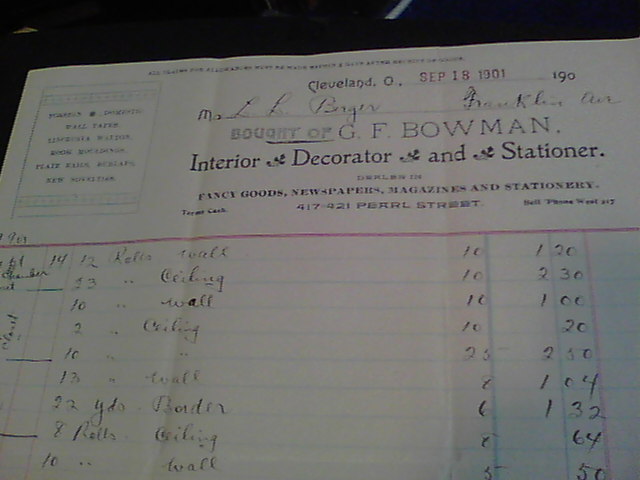 ALL CLAIMS FOR ALLOWANCES MUST BE MADE WITHIN 5 DAYS AFTER RECEIPT OF GOODS.
Cleveland, O., SEP 18 1901 190
M Franklin Ave
BOUGHT OF G. F. BOWMAN,
Interior Decorator and Stationer.
DEALER IN
FANCY GOODS, NEWSPAPERS, MAGAZINES AND STATIONERY.
Terms Cash. 417-421 PEARL STREET. Bell 'Phone West 217
FOREIGN & DOMESTIC
WALL PAPER
LINCRUSTA WALTON,
ROOM MOULDINGS,
PLATE RAILS, BURLAPS,
NEW NOVELTIES.
14 12 Rolls Wall 10 1 20
23 " Ceiling 10 2 30
10 " Wall 10 1 00
2 " Ceiling 10 20
10 " " 25 2 50
13 " Wall 8 1 04
22 yds Border 6 1 32
8 Rolls Ceiling 8 64
10 " Wall 5 50